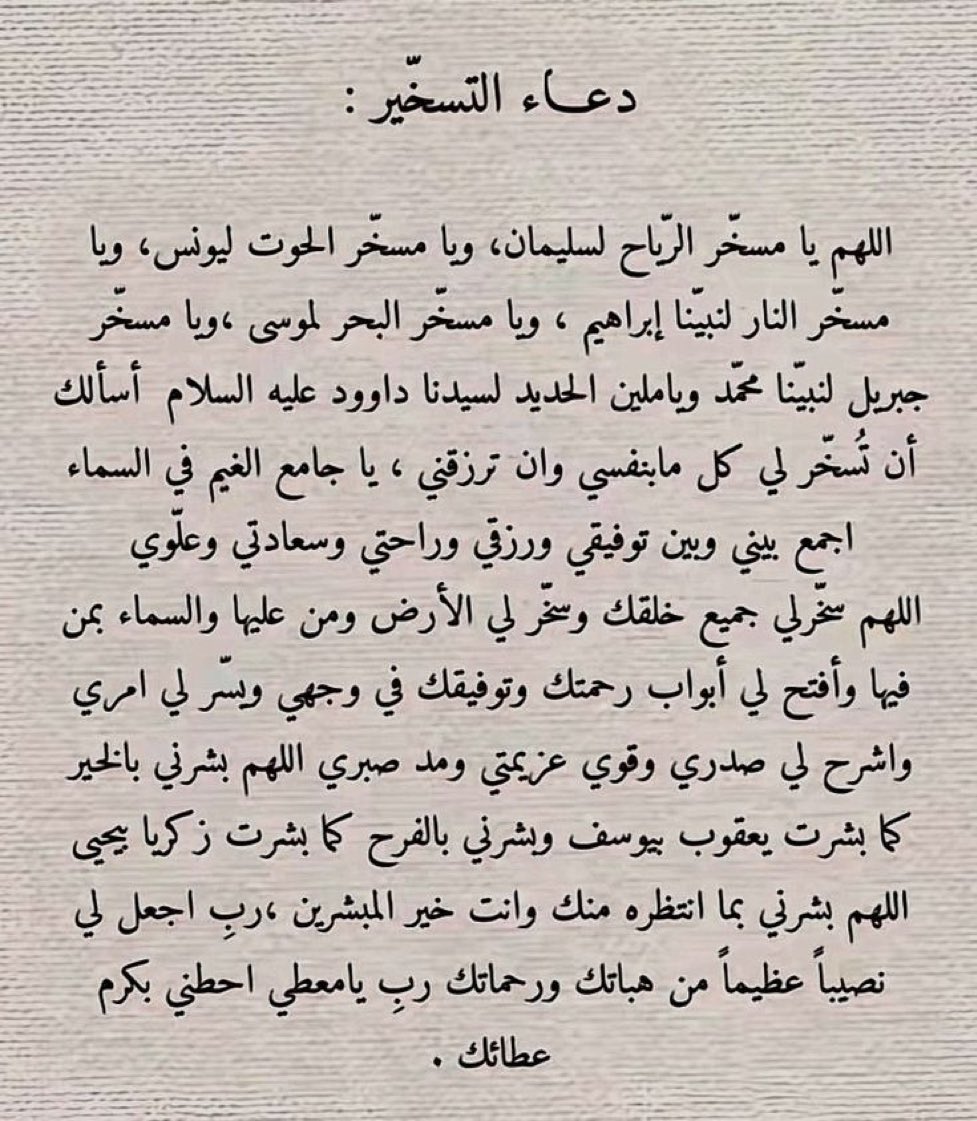 دعـــاء التسخّير :
اللهم يا مسخّر الرّياح لسليمان، ويا مسخّر الحوت ليونس، ويا
مسخّر النار لنبيّنا إبراهيم ، ويا مسخّر البحر لموسى ،ويا مسخّر
جبريل لنبيّنا محمّد وياملين الحديد لسيدنا داوود عليه السلام أسألك
أن تُسخّر لي كل مابنفسي وان ترزقني ، يا جامع الغيم في السماء
اجمع بيني وبين توفيقي ورزقي وراحتي وسعادتي وعلّوي
اللهم سخّرلي جميع خلقك وسخّر لي الأرض ومن عليها والسماء بمن
فيها وأفتح لي أبواب رحمتك وتوفيقك في وجهي ويسّر لي امري
واشرح لي صدري وقوي عزيمتي ومد صبري اللهم بشرني بالخير
كما بشرت يعقوب بيوسف وبشرني بالفرح كما بشرت زكريا بيحيى
اللهم بشرني بما انتظره منك وانت خير المبشرين ،ربِ اجعل لي
نصيباً عظيماً من هباتك ورحماتك ربِ يامعطي احطني بكرم
عطائك .